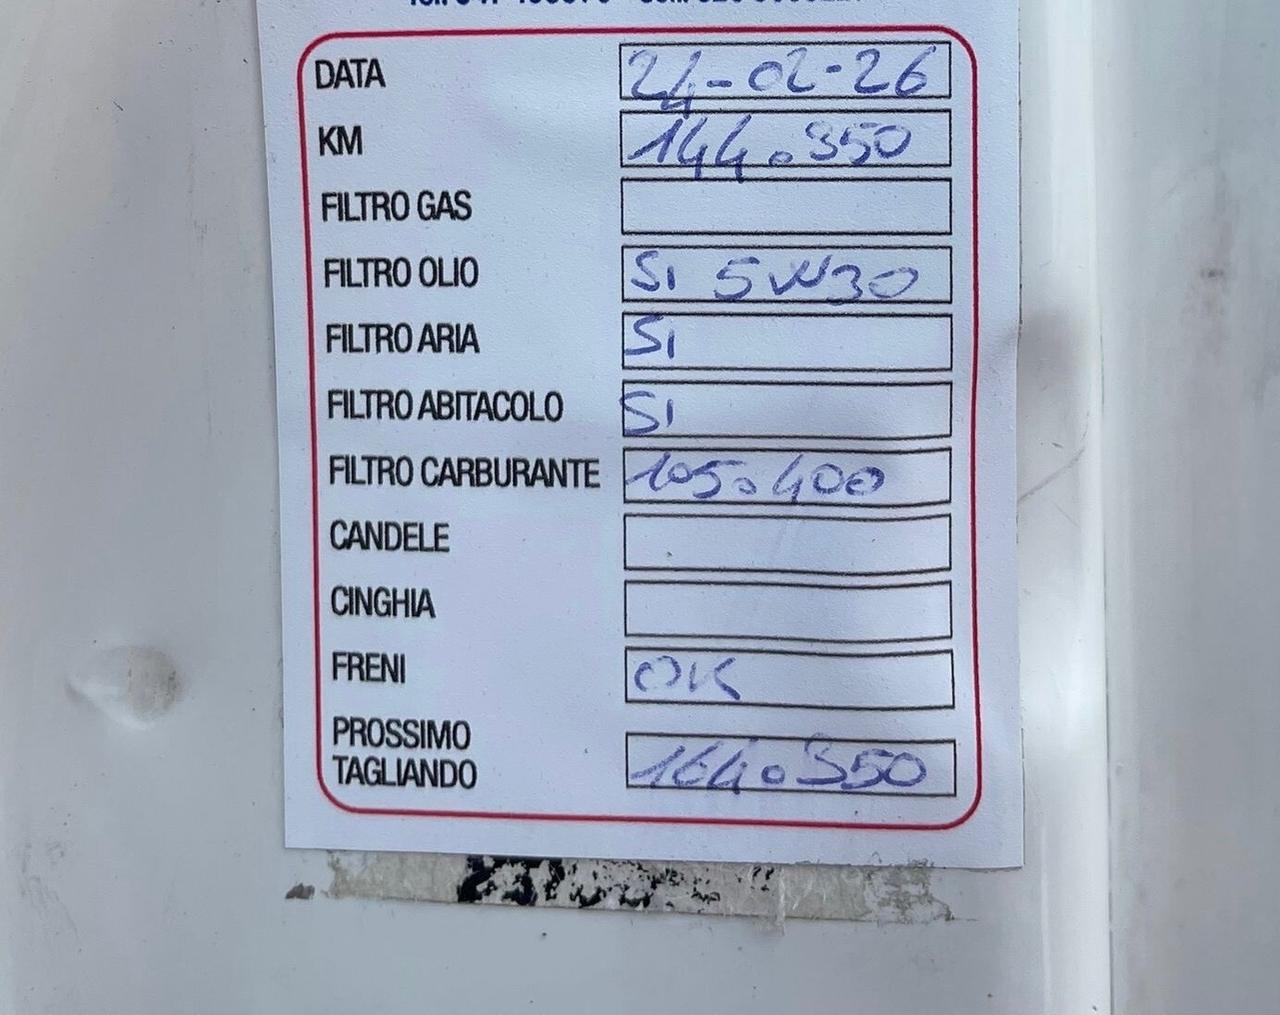 DATA 24-02-26
KM 144.350
FILTRO GAS
FILTRO OLIO SI 5W30
FILTRO ARIA SI
FILTRO ABITACOLO SI
FILTRO CARBURANTE 105.400
CANDELE
CINGHIA
FRENI OK
PROSSIMO
TAGLIANDO 164.350